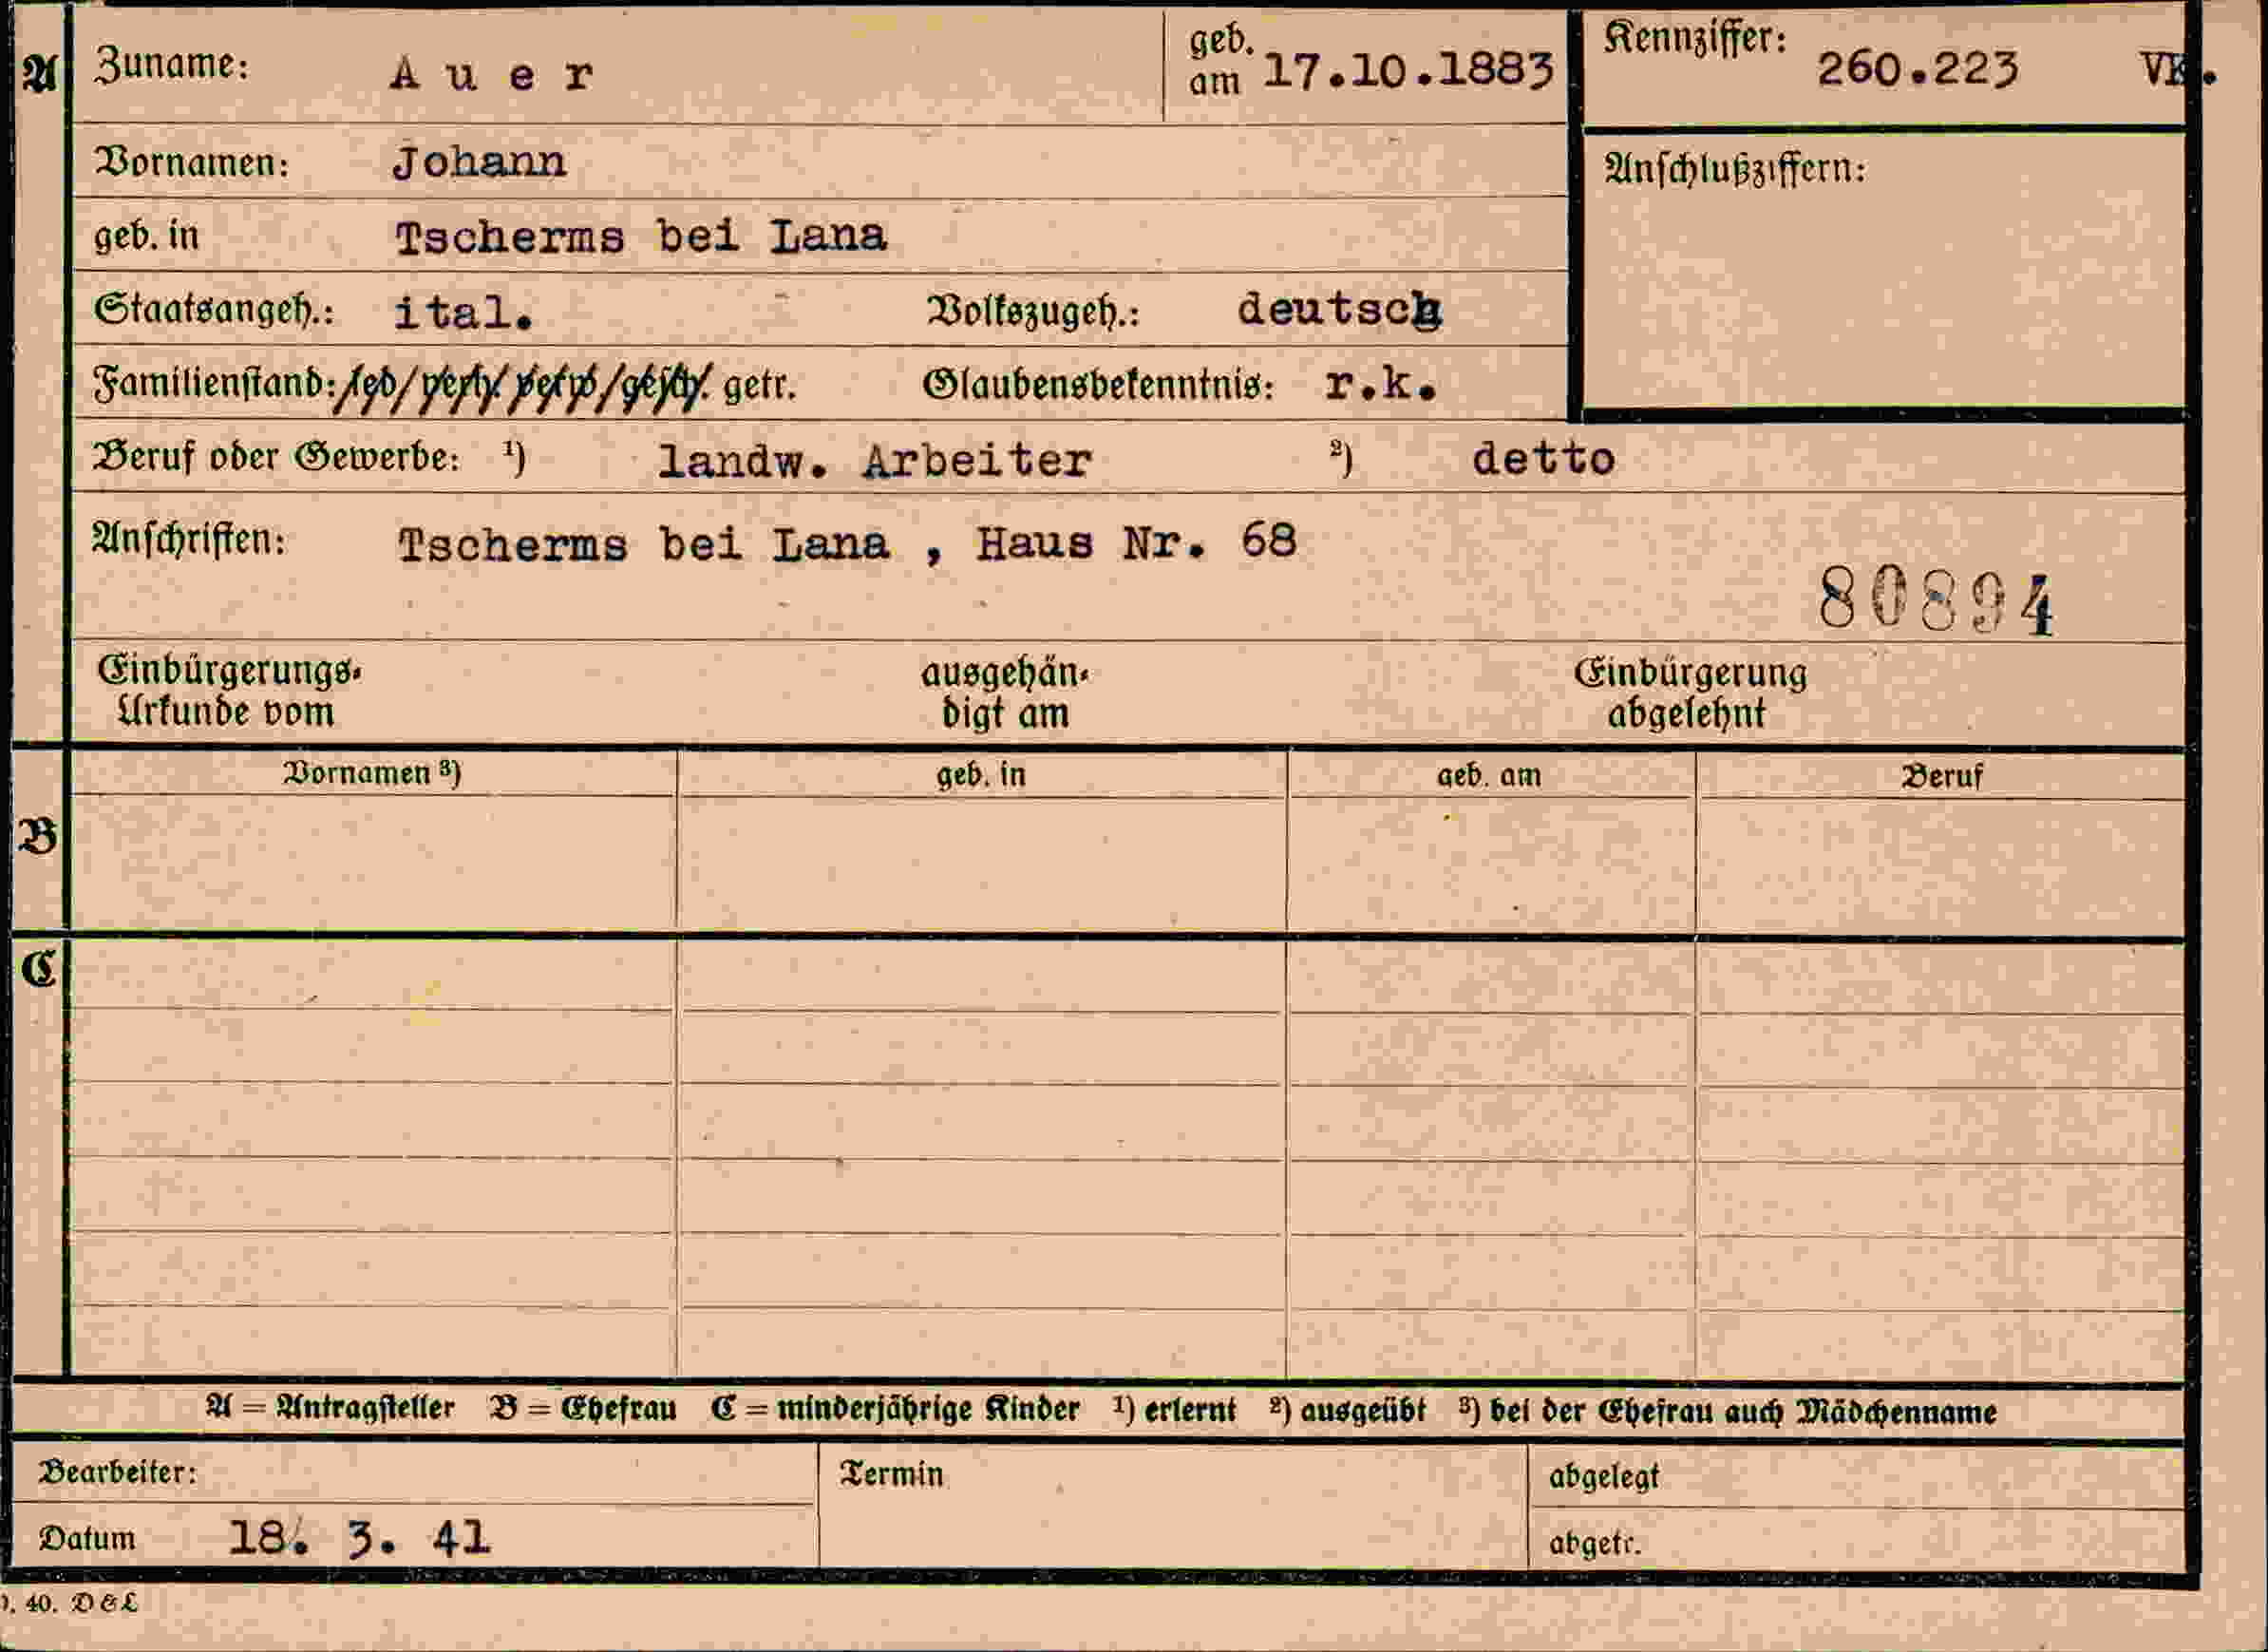 A Zuname: Auer geb. am 17.10.1883 Kennziffer: 260.223 VK.
Vornamen: Johann Anschlußziffern:
geb. in Tscherms bei Lana
Staatsangeh.: ital. Volkszugeh.: deutsch
Familienstand: led/verh/verw/gesch. getr. Glaubensbekenntnis: r.k.
Beruf oder Gewerbe: ¹) landw. Arbeiter ²) detto
Anschriften: Tscherms bei Lana , Haus Nr. 68
80894
Einbürgerungs- ausgehän- Einbürgerung
Urkunde vom digt am abgelehnt
Vornamen ³) geb. in geb. am Beruf
B
C
A = Antragsteller B = Ehefrau C = minderjährige Kinder ¹) erlernt ²) ausgeübt ³) bei der Ehefrau auch Mädchenname
Bearbeiter: Termin abgelegt
Datum 18. 3. 41 abgetr.
40. D & L